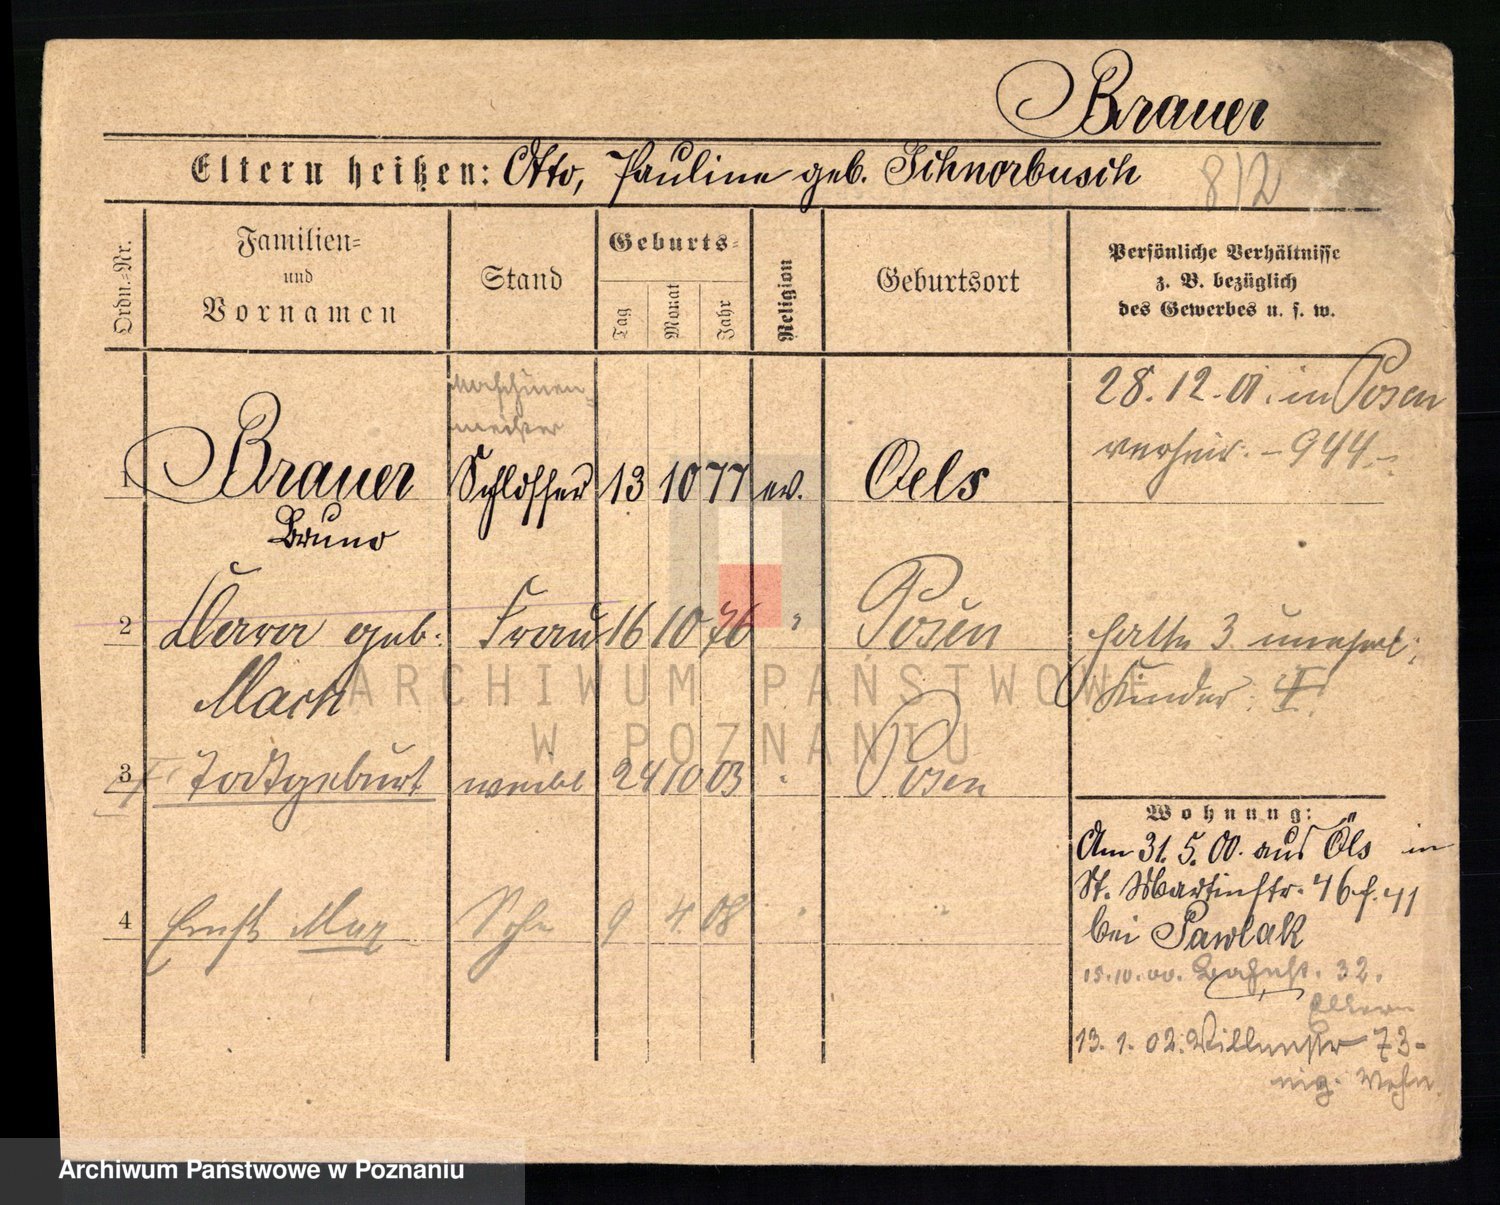 Brauer
Eltern heißen: Otto, Pauline geb. Schnorbusch
812
Ordn.=Nr.
Familien=
und
Vornamen
Stand
Geburts=
Tag
Monat
Jahr
Religion
Geburtsort
Persönliche Verhältnisse
z. B. bezüglich
des Gewerbes u. s. w.
Maschinen-
meister
28. 12. 01. in Posen
verheir. - 944.-
1 Brauer Schlosser 13 10 77 ev. Oels
Bruno
2 geb. Frau 16 10 76 " Posen
Mach
hatte 3 unehel.
Kinder.
3 Todtgeburt weibl 24 10 03 " Posen
4 Ernst Max Sohn 9 4. 08 " "
Wohnung:
Am 31. 5. 00. aus Öls in
St. Martinstr. 46 f. 41
bei Pawlak
15. 10. 00. 32.
Eltern
13. 1. 02. 73-
eig. Wohn.
ARCHIWUM PAŃSTWOWE
W POZNANIU
Archiwum Państwowe w Poznaniu